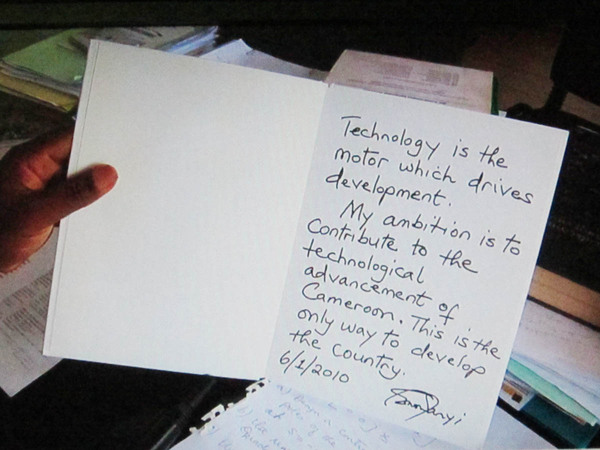 Technology is the
motor which drives
development.
My ambition is to
Contribute to the
technological
advancement of
Cameroon. This is the
only way to develop
the Country.
6/1/2010